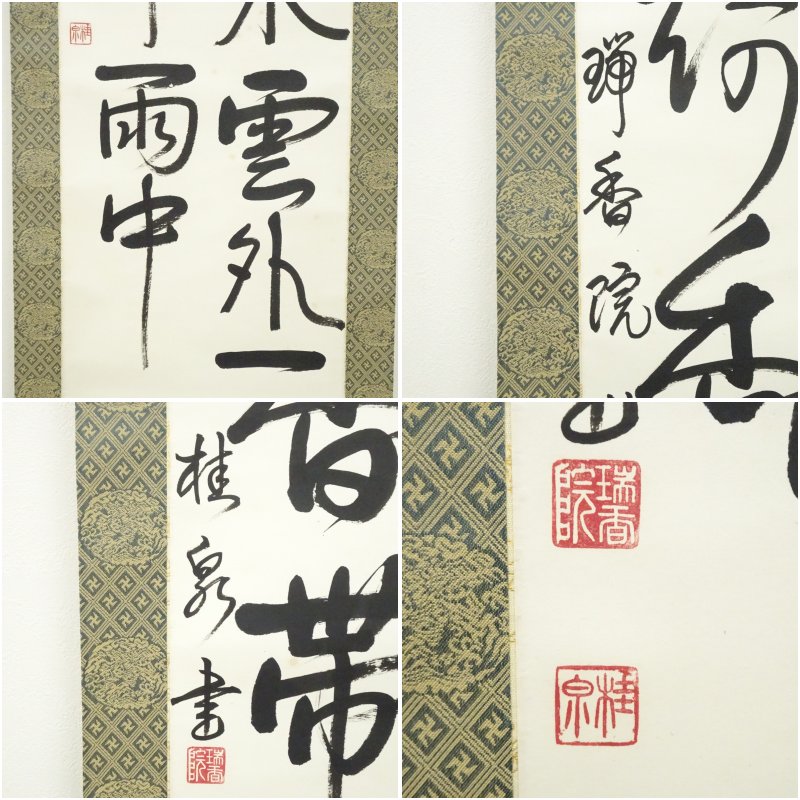 雲外一
雨中
桂泉
香
瑞香院
香帯
桂泉書
瑞香院
瑞香院
桂泉